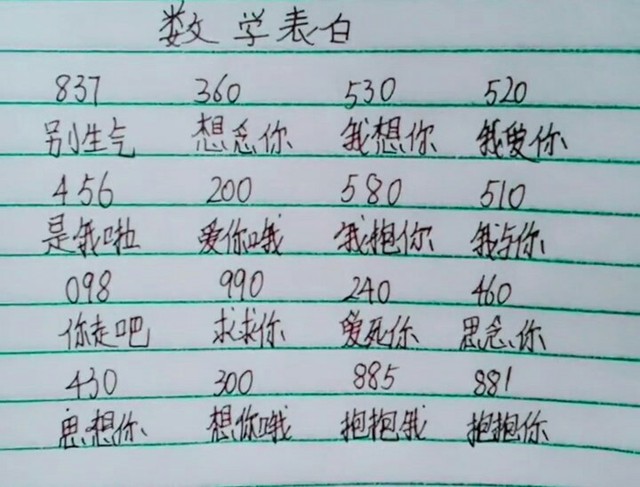 数学表白
837 360 530 520
别生气 想念你 我想你 我爱你
456 200 580 510
是我啦 爱你哦 我抱你 我与你
098 990 240 460
你走吧 求求你 爱死你 思念你
430 300 885 881
思想你 想你哦 抱抱我 抱抱你